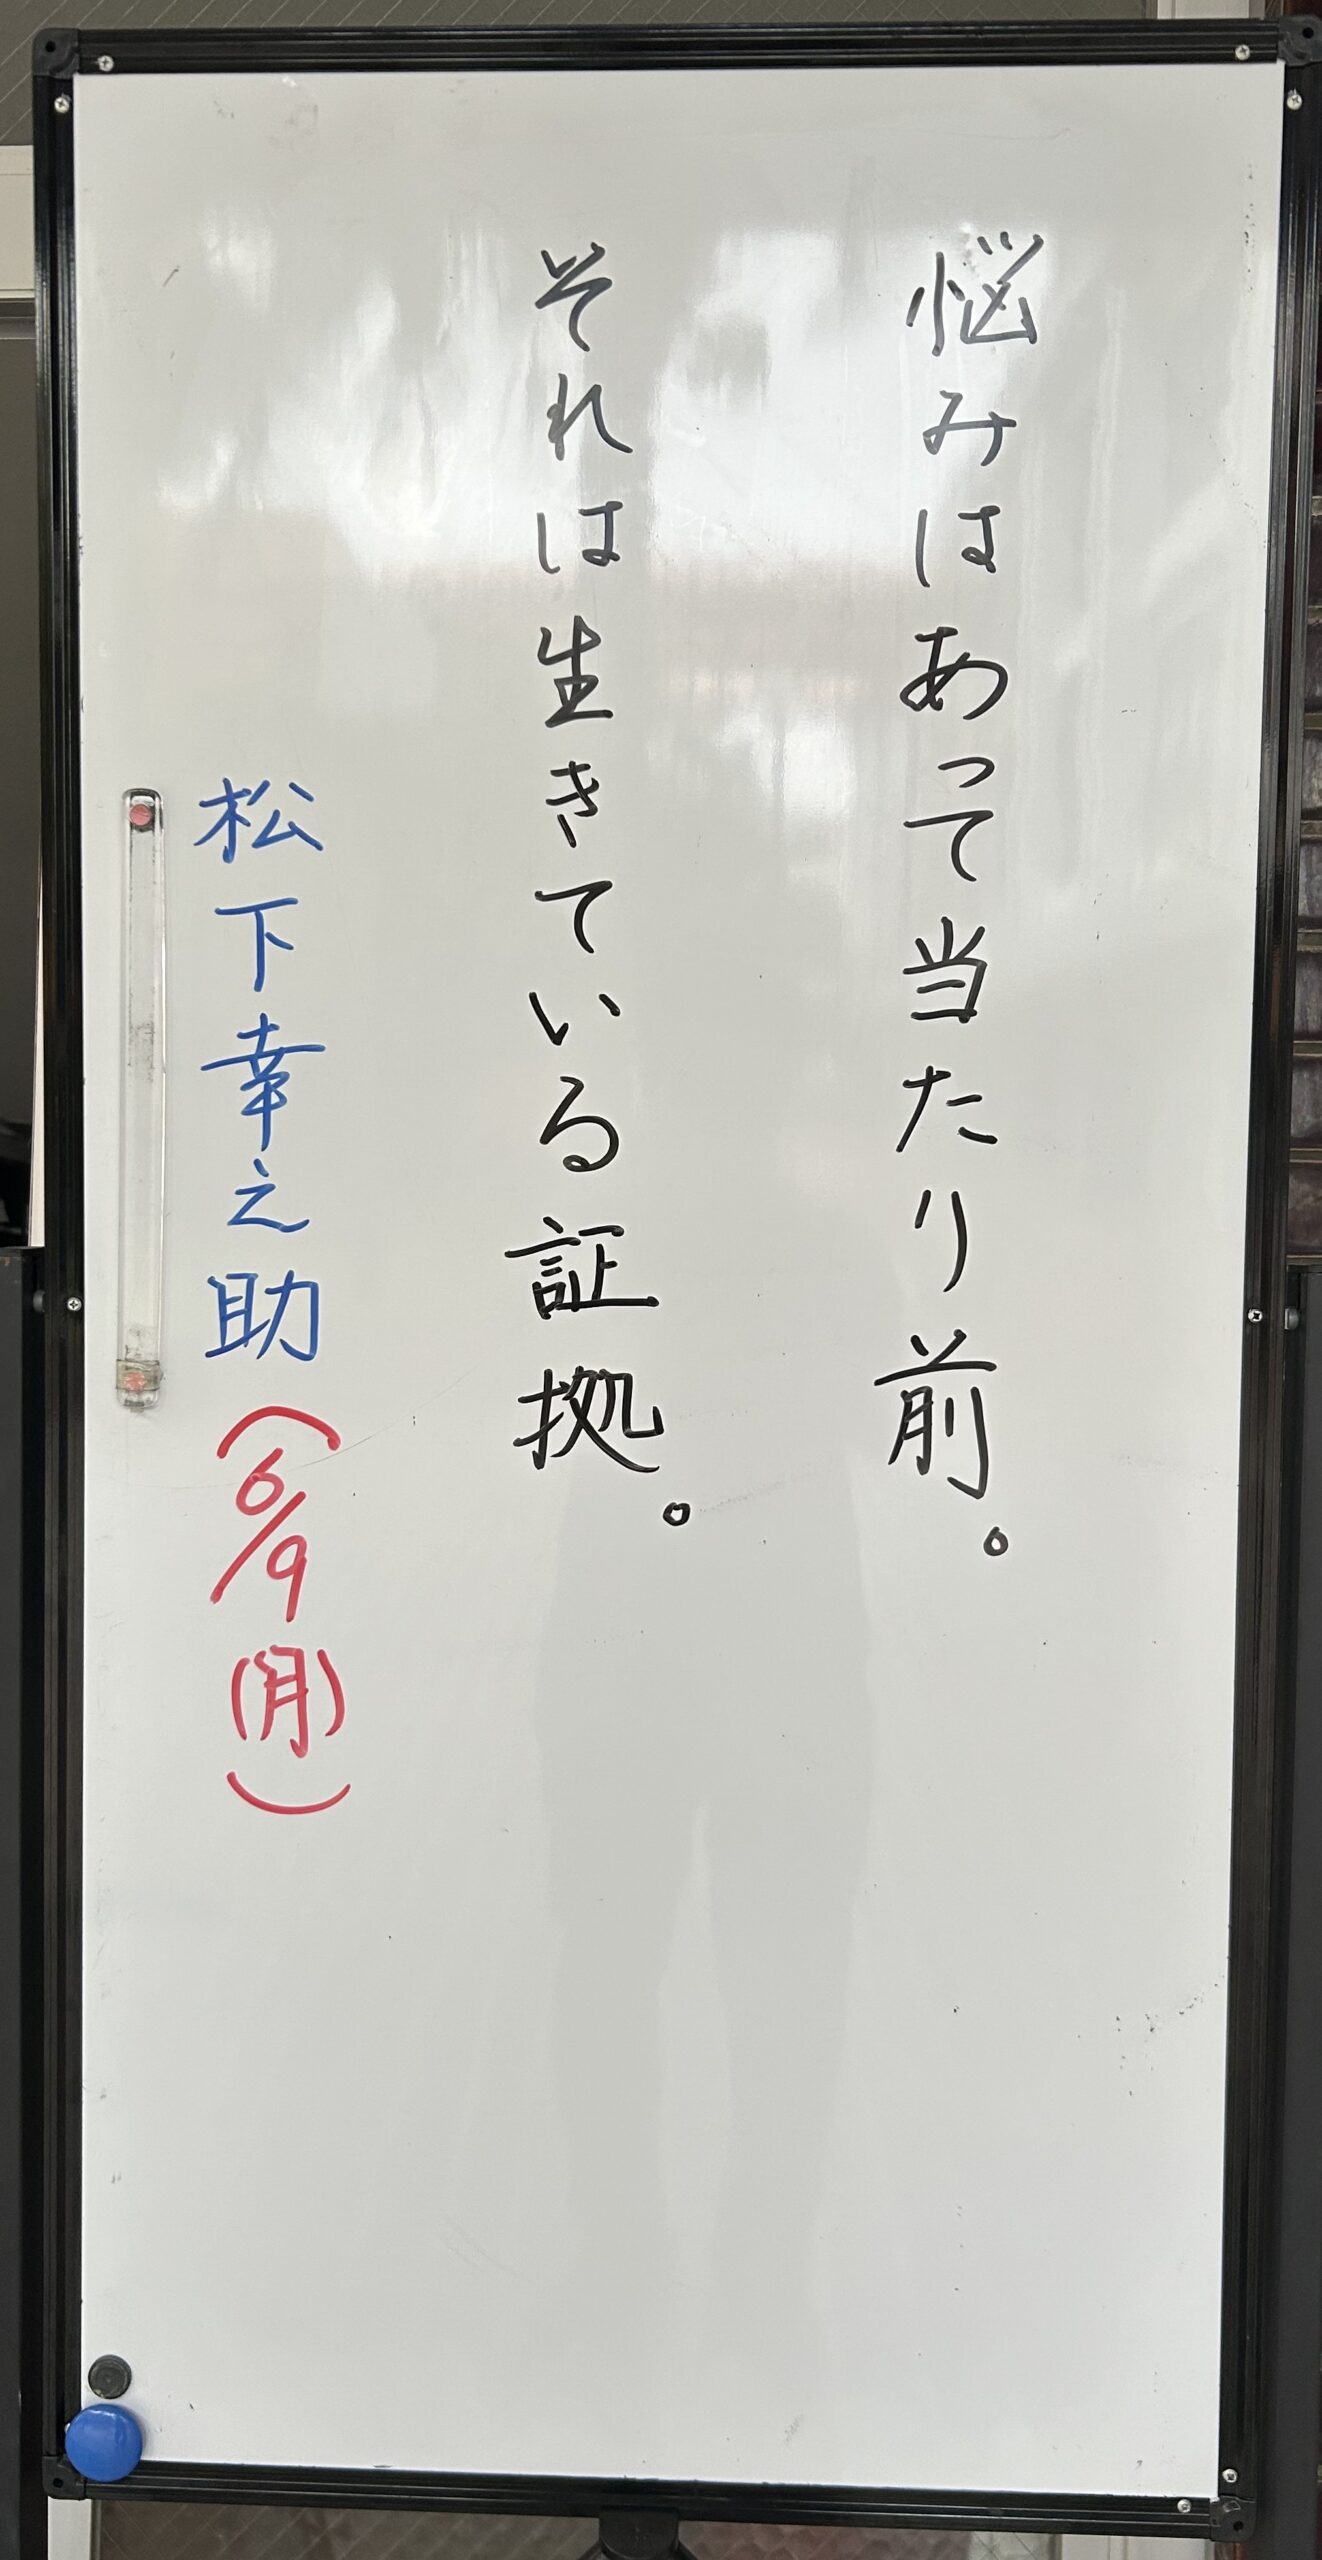 悩みはあって当たり前。
それは生きている証拠。
松下幸之助（6/9（月））